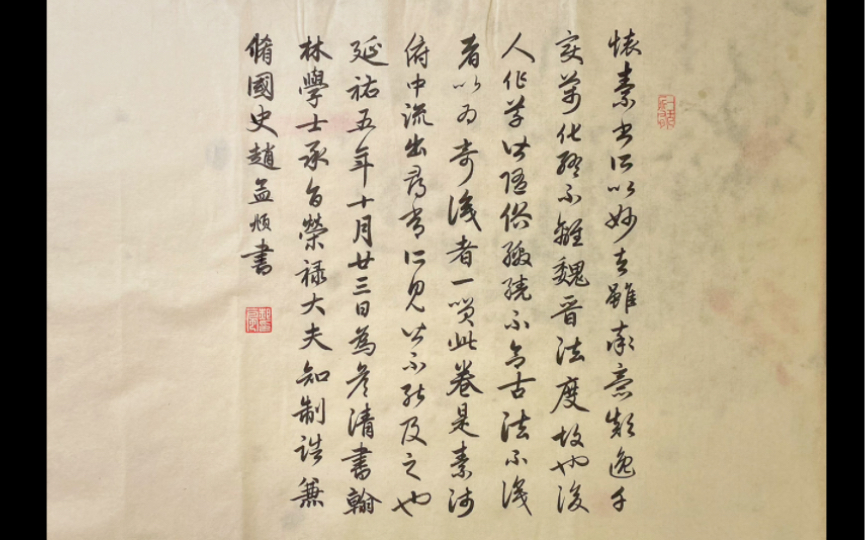 懷素書所以妙者雖率意顛逸千
變萬化終不離魏晉法度故也後
人作草皆隨俗繳繞不合古法不識
者以為奇識者一笑此卷是素師
腑中流出尋常所見皆不能及之也
延祐五年十月廿三日為彥清書翰
林學士承旨榮祿大夫知制誥兼
脩國史趙孟頫書